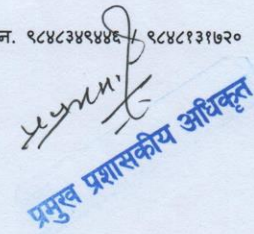 न. ९८४८३४९४४६ / ९८४८१३१७२०
प्रमुख प्रशासकीय अधिकृत